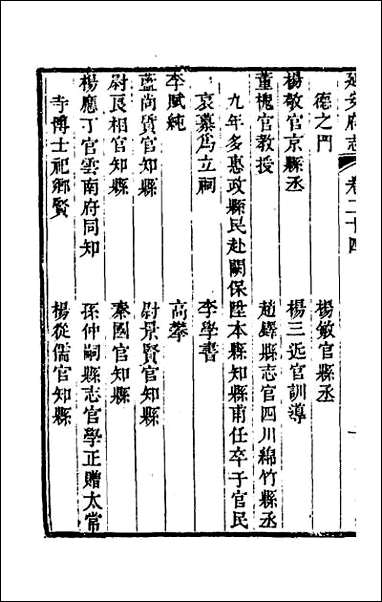 延安府志 卷二十四
德之門 楊敏官縣丞
楊敬官京縣丞 楊三近官訓導
董槐官教授 趙鐸縣志官四川綿竹縣丞
九年多惠政縣民赴闕保陞本縣知縣甫任卒于官民
哀慕爲立祠 李學書
李賦純 高攀
藍尚質官知縣 尉景賢官知縣
尉良相官知縣 秦國官知縣
楊應丁官雲南府同知 孫仲嗣縣志官學正贈太常
寺博士祀鄉賢 楊從儒官知縣